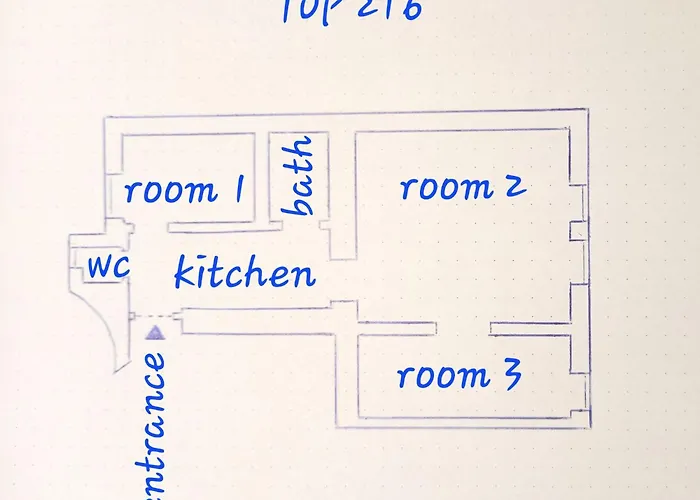 Top 216
room 1
bath
room 2
wc
kitchen
room 3
entrance